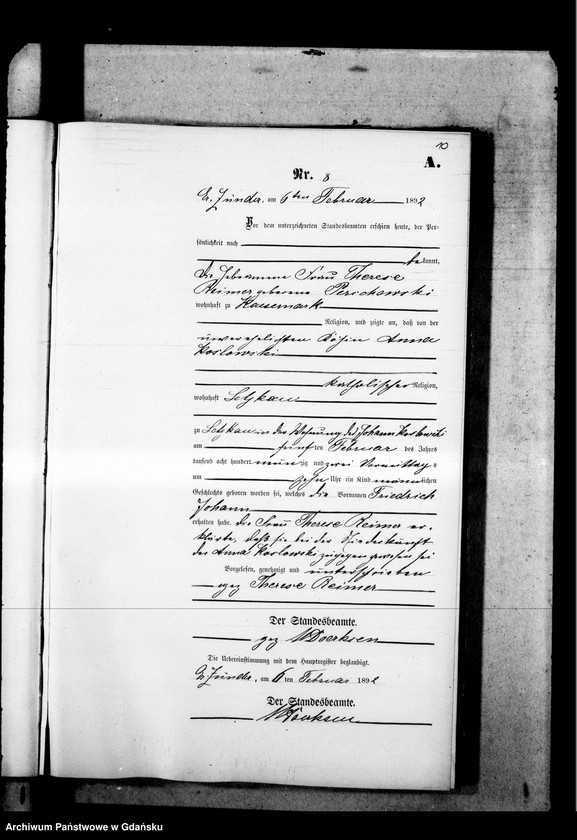 10
A.
Nr. 8
Gr. Zünder, am 6ten Februar 1892
Vor dem unterzeichneten Standesbeamten erschien heute, der Per-
sönlichkeit nach
bekannt,
die Hebamme Frau Therese
Reimer geborene
wohnhaft zu Käsemark
Religion, und zeigte an, daß von der
unverehelichten Anna
Koslowski
katholischer Religion,
wohnhaft Letzkau
zu Letzkau in der Wohnung des Johann Koslowski
am fünften Februar des Jahres
tausend acht hundert neunzig und zwei Vormittags
um zehn Uhr ein Kind männlichen
Geschlechts geboren worden sei, welches die Vornamen Friedrich
Johann
erhalten habe. die Frau Therese Reimer er-
klärte, daß sie bei der Niederkunft
der Anna Koslowski zugegen gewesen sei
Vorgelesen, genehmigt und unterschrieben
gez Therese Reimer
Der Standesbeamte.
gez Doerksen
Die Uebereinstimmung mit dem Hauptregister beglaubigt.
Gr. Zünder, am 6ten Februar 1892
Der Standesbeamte.
Doerksen
Archiwum Państwowe w Gdańsku